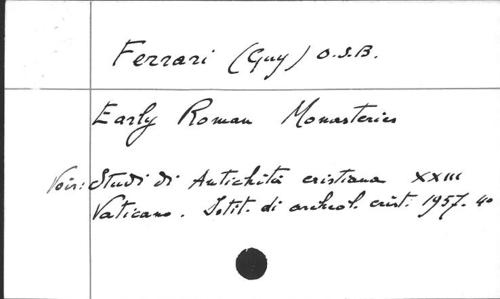 Ferrari (Guy) O.S.B.
Early Roman Monasteries
Voir: Studi di Antichità cristiana XXIII
Vaticano. Istit. di archeol. crist. 1957. 4º